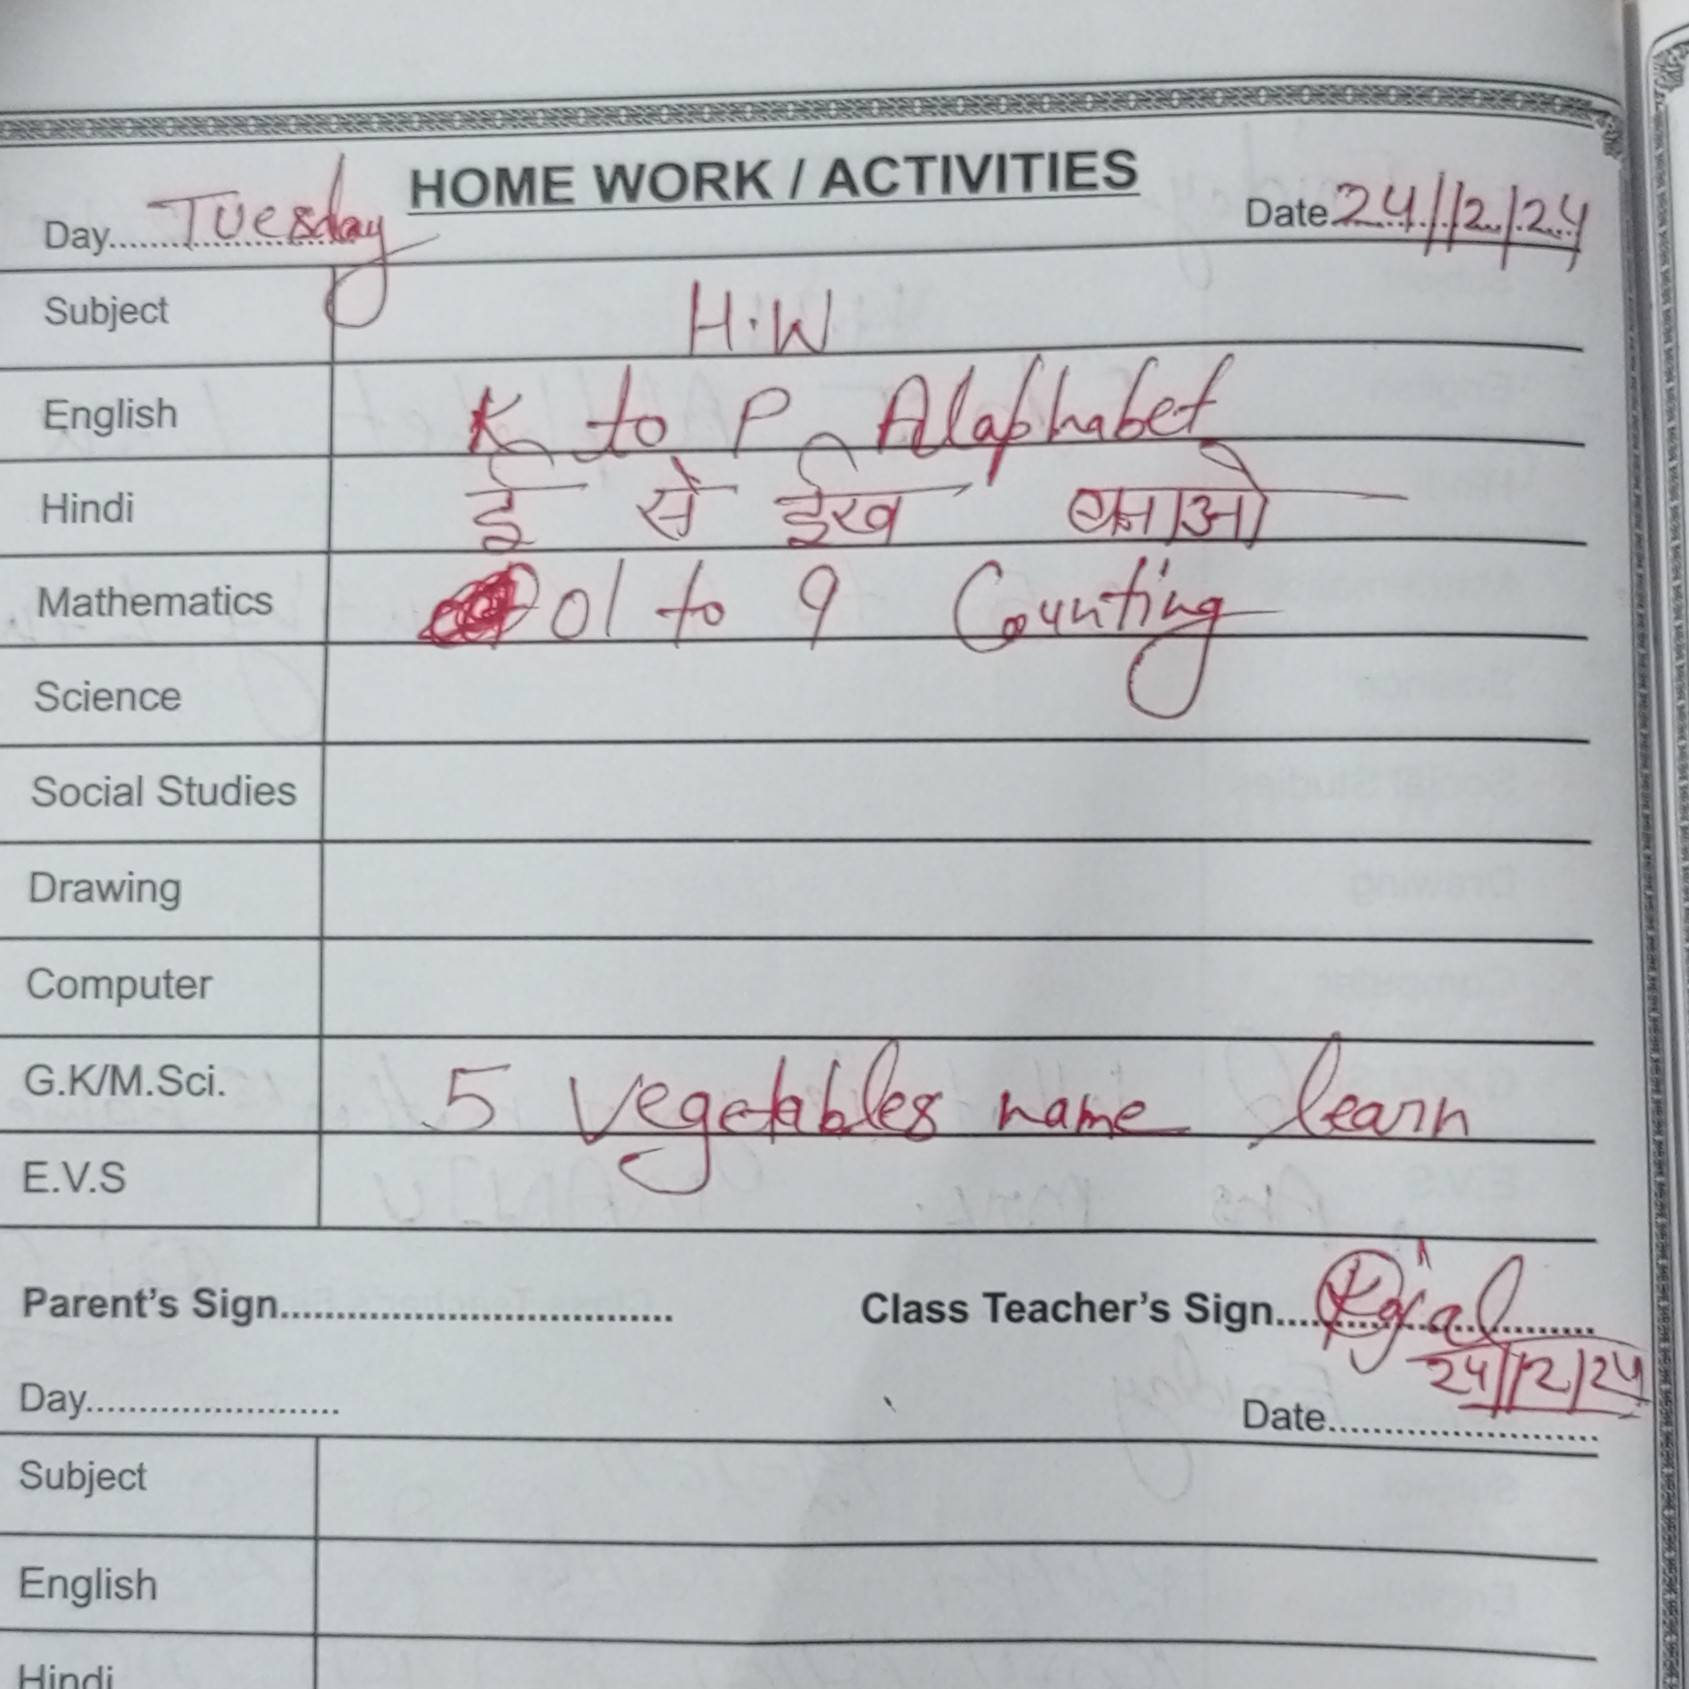 HOME WORK / ACTIVITIES
Day.......Tuesday Date 24/12/24
Subject H.W
English K to P Alaphabet
Hindi ई से ईख बनाओ
Mathematics 01 to 9 Counting
Science
Social Studies
Drawing
Computer
G.K/M.Sci. 5 Vegetables name learn
E.V.S
Parent's Sign................................... Class Teacher's Sign....Kajal
24/12/24
Day....................... Date........................
Subject
English
Hindi